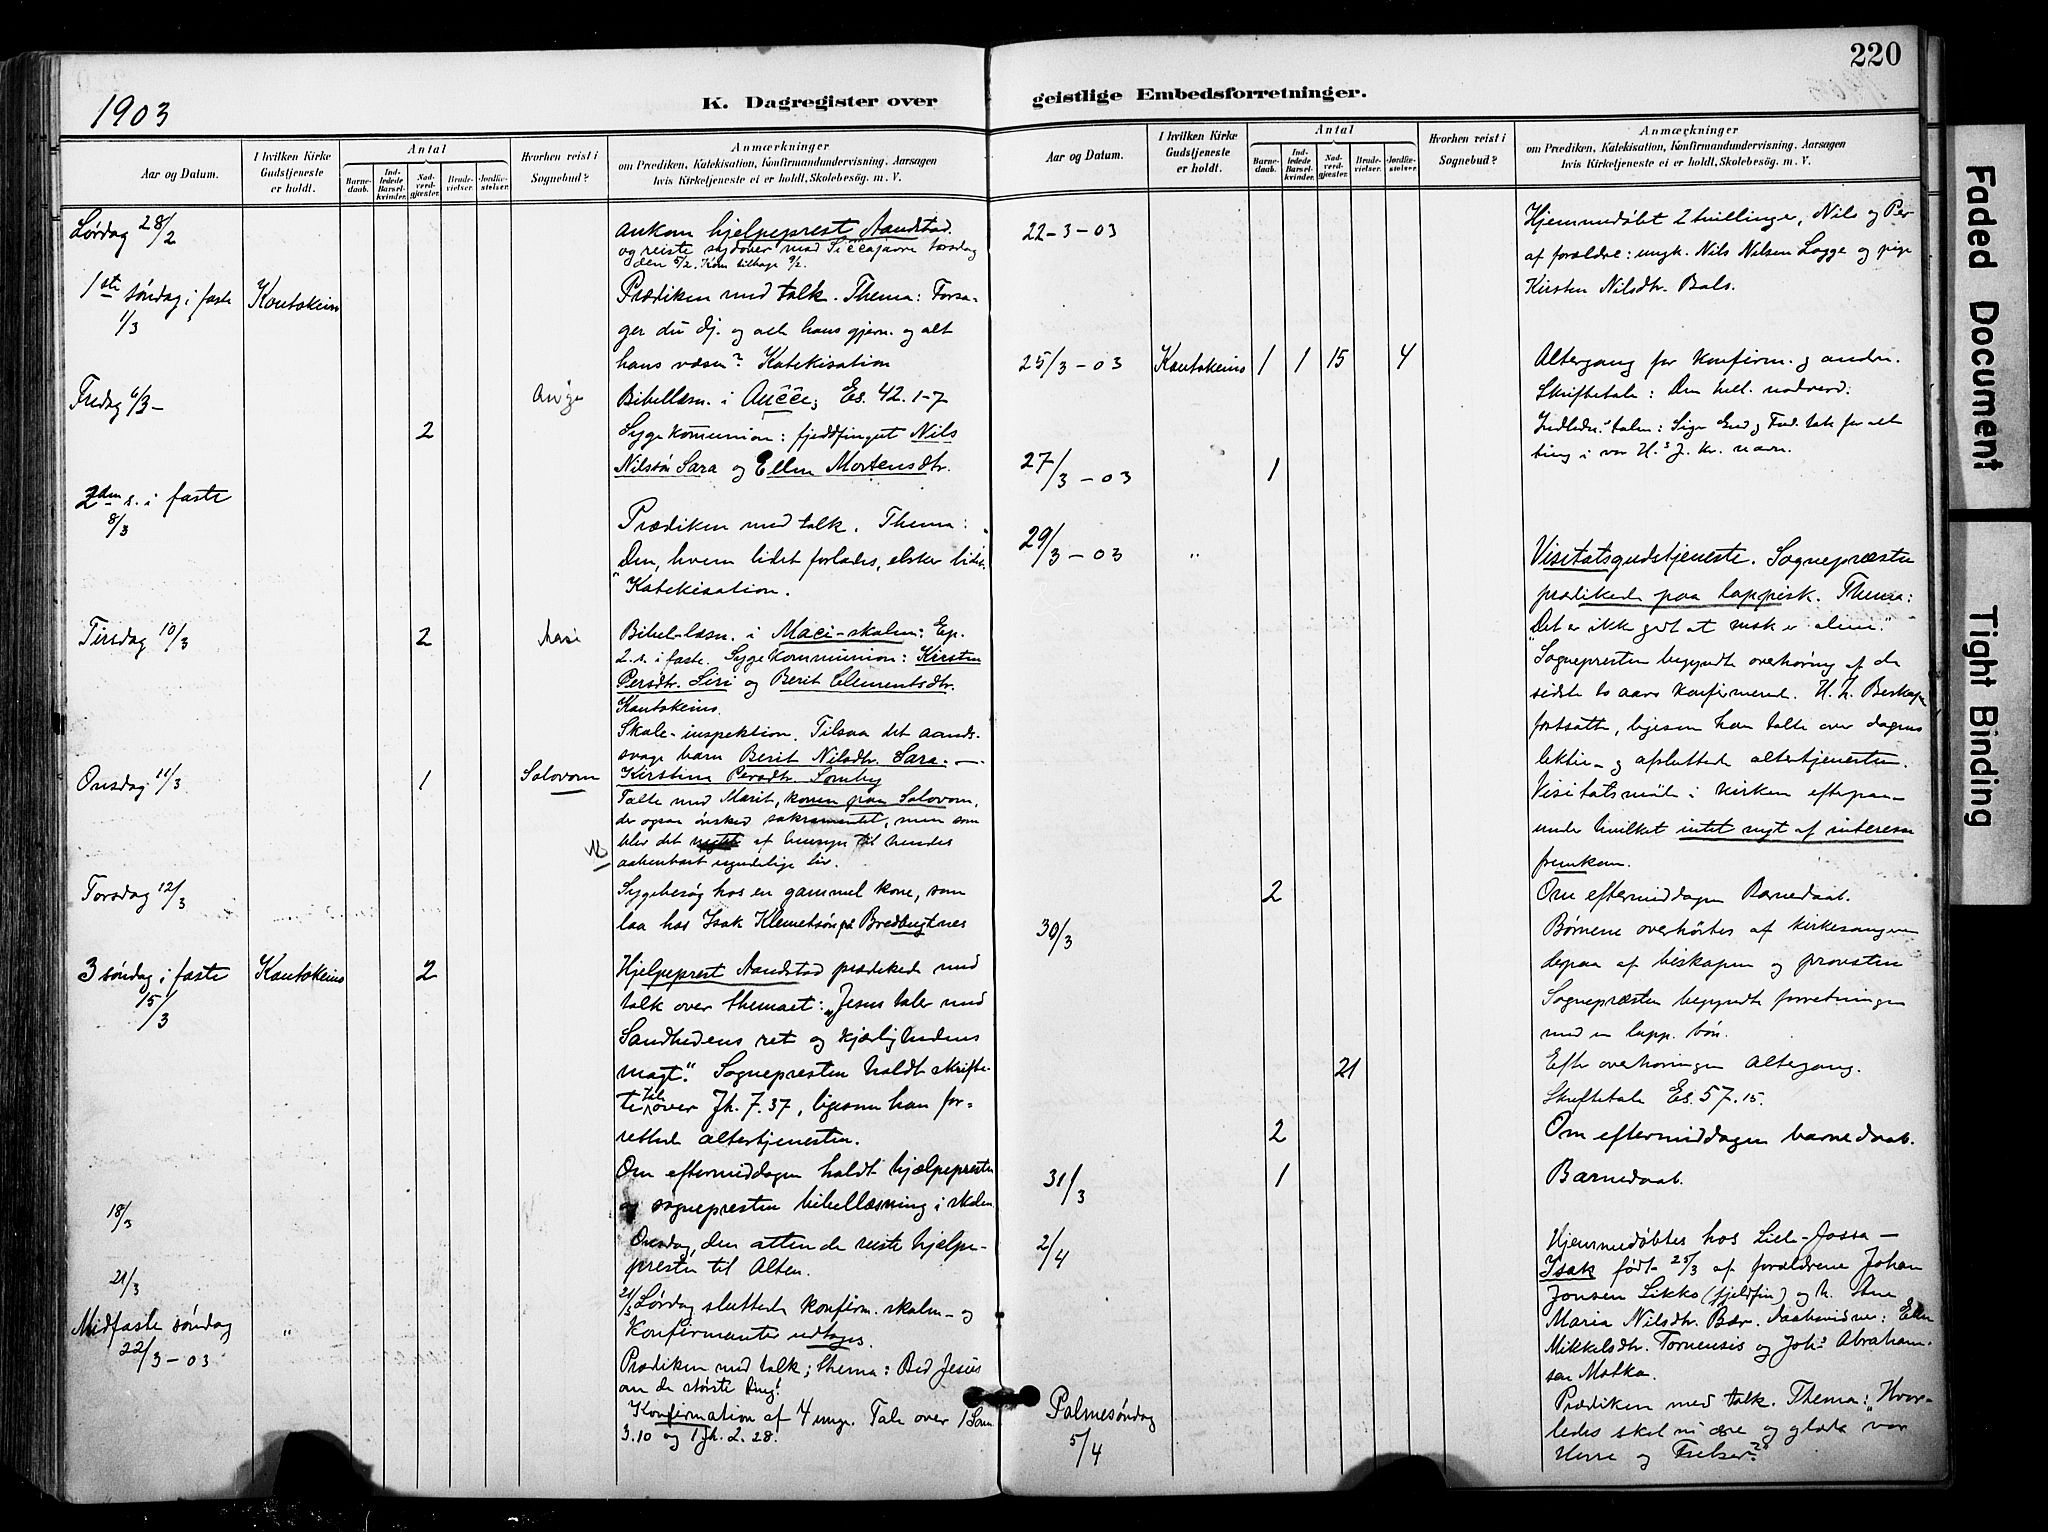 220
1903
K. Dagregister over
geistlige Embedsforretninger.
Aar og Datum.
I hvilken Kirke Gudstjeneste er holdt.
Antal
Barne-daab.
Ind-ledede Barsel-kvinder.
Nad-verd-gjæster.
Brude-vielser.
Jordfæ-stelser.
Hvorhen reist i Sognebud?
Anmærkninger
om Prædiken, Katekisation, Konfirmandundervisning, Aarsagen
hvis Kirketjeneste ei er holdt, Skolebesög. m. V.
Lørdag 28/2
ankom hjelpeprest Aandstad.
og reiste sydover med Siččajavre torsdag
den 5/2. Kom tilbage 9/2.
1ste søndag i faste 1/3 Kautokeino
Prædiken med tolk. Thema: Forsa-
ger du dj. og alt hans gjern. og alt
hans væsen? Katekisation
Fredag 6/3 –
Bibellæsn. i Aučče; Es. 42. 1-7
2
Sygekommunion: fjeldfinnen Nils
Nilssøn Sara og Ellen Mortensdtr.
2den s. i faste 8/3
Prædiken med tolk. Thema:
"Den, hvem lidet forlades, elsker lidet."
Katekisation.
Tirsdag 10/3 2 Masi
Bibel-læsn. i Maci-skolen: Ep.
2. s. i faste. Sygekommunion: Kirsten
Persdtr. Siri og Berit Clementsdtr.
Kautokeino.
Skole-inspektion. Tilsaa det aands-
svage barn Berit Nilsdtr. Sara. —
Onsdag 11/3 1 Solovom
Kirstina Persdtr. Somby
Talte med Marit, konen paa Solovom,
der ogsaa ønsked sakramentet, men som
blev det af hensyn til hendes
aabenbart ugudelige liv.
Torsdag 12/3
Sygebesøg hos en gammel kone, som
laa hos Isak Klemetsøn på Bredbugtnes
3 søndag i faste 15/3 Kautokeino 2
Hjelpeprest Aandstad prædikede med
tolk over themaet: "Jesus taler med
Sandhedens ret og kjærlighedens
magt." Sognepresten holdt skrifte-
tale over Jh. 7. 37, ligesom han for-
rettede altertjenesten.
Om eftermiddagen holdt hjælpepresten
og sognepresten bibellæsning i skolen
18/3
Onsdag, den attende reiste hjelpe-
presten til Alten.
21/3
21/3 Lørdag sluttede konfirm. skolen – og
Konfirmanter udtages.
Midfaste søndag 22/3 – 03 "
Prædiken med tolk; thema: Bed Jesus
om de største ting!
Konfirmation af 4 unge. Tale over 1 Sam
3.10 og 1 Jh. 2. 28.
Aar og Datum.
I hvilken Kirke Gudstjeneste er holdt.
Antal
Barne-daab.
Ind-ledede Barsel-kvinder.
Nad-verd-gjæster.
Brude-vielser.
Jordfæ-stelser.
Hvorhen reist i Sognebud?
Anmærkninger
om Prædiken, Katekisation, Konfirmandundervisning, Aarsagen
hvis Kirketjeneste ei er holdt, Skolebesög. m. V.
22-3-03
Hjemmedøbt 2 tvillinger, Nils og Per
af forældre: ungk. Nils Nilsen Logge og pige
Kirsten Nilsdtr. Bals.
25/3 – 03 Kautokeino 1 1 15 4
Altergang for konfirm. og andre.
Skriftetale: Den hell. nadverd.
Indledn. talen: Sige Gud og Fad. tak for alt
ting i vor H.s J. Kr. navn.
27/3 – 03 1
29/3 – 03 "
Visitatsgudstjeneste. Sognepræsten
prædikede paa lappisk. Thema:
"Det er ikke godt at msk er alene."
Sognepresten begyndte overhøring af de
sidste to aars konfirmerede. H. h. Biskopen
fortsatte, ligesom han talte over dagens
lektie – og afsluttede altertjenesten.
Visitatsmøde i kirken efterpaa –
under hvilket intet nyt af interesse
fremkom.
2
Om eftermiddagen Barnedaab.
30/3
Børnene overhørtes af kirkesangeren
depaa af biskopen og provsten
Sognepræsten begyndte forretningen
med en lapp. bøn.
21
Efter overhøringen altergang.
Skriftetale Es. 57. 15.
2
Om eftermiddagen barnedaab.
31/3 1
Barnedaab.
2/4
Hjemmedøbtes hos Lille-Jossa –
Isak født 25/3 af forældrene Johan
Jonsen Likko (fjeldfin) og h. Ane
Maria Nilsdtr. Bær. Daabsvidner: Ellen
Mikkelsdtr. Tornensis og Joh.s Abraham-
sen Mothka.
Palmesøndag 5/4
Prædiken med tolk. Thema: "Hvor-
ledes skal vi ære og glæde vor
Herre og Frelser?"
Faded Document
Tight Binding